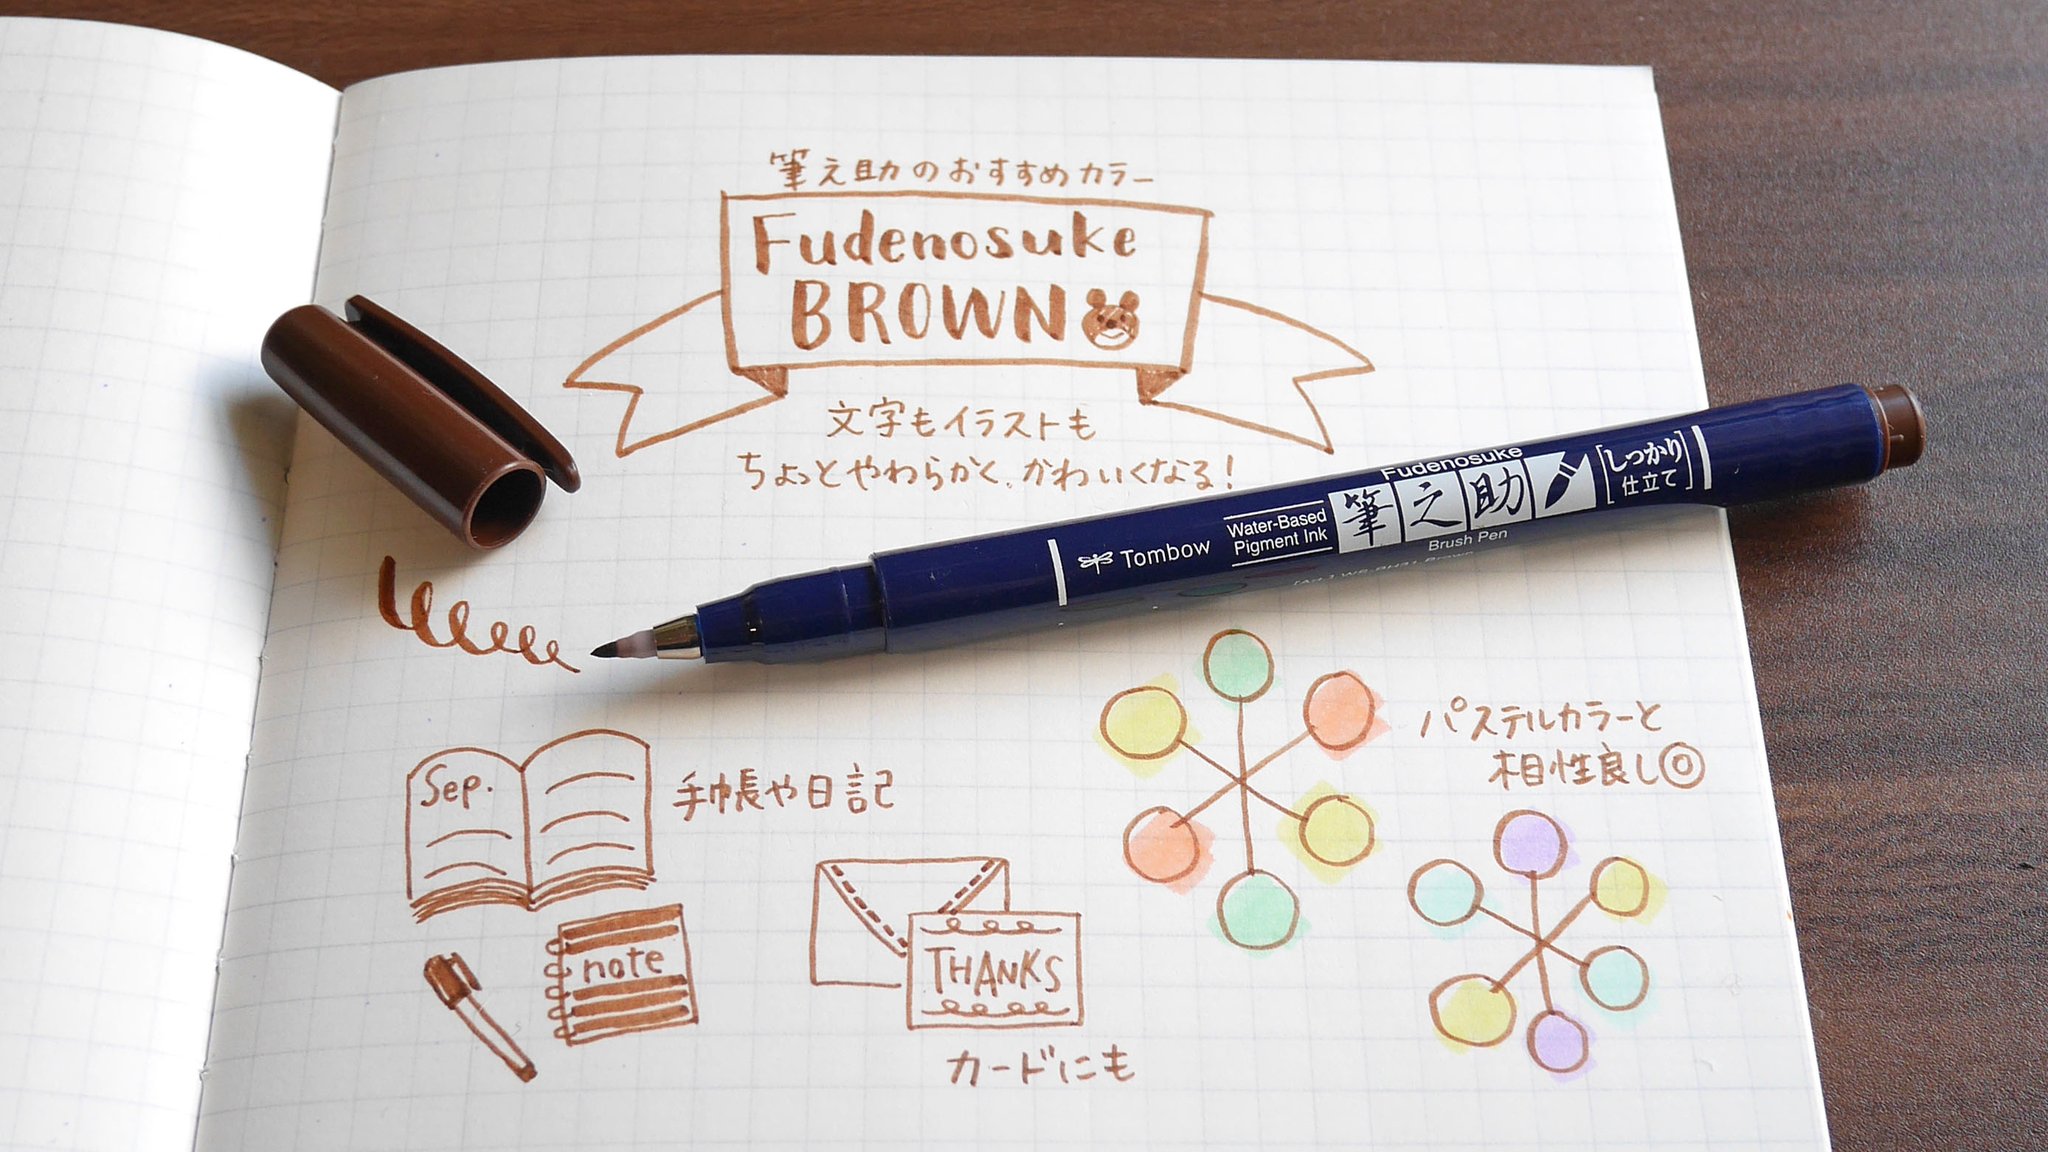 筆之助のおすすめカラー
Fudenosuke
BROWN
文字もイラストも
ちょっとやわらかく、かわいくなる！
Tombow
Water-Based
Pigment Ink
Fudenosuke
筆之助
Brush Pen
しっかり
仕立て
パステルカラーと
相性良し◎
Sep.
手帳や日記
note
THANKS
カードにも